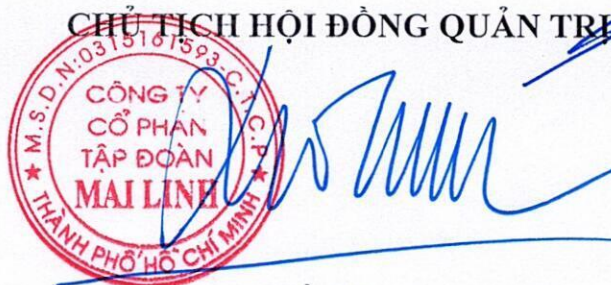 CHỦ TỊCH HỘI ĐỒNG QUẢN TRỊ
M.S.D.N:0315161593-C.T.C.P
CÔNG TY
CỔ PHẦN
TẬP ĐOÀN
MAI LINH
★ THÀNH PHỐ HỒ CHÍ MINH ★